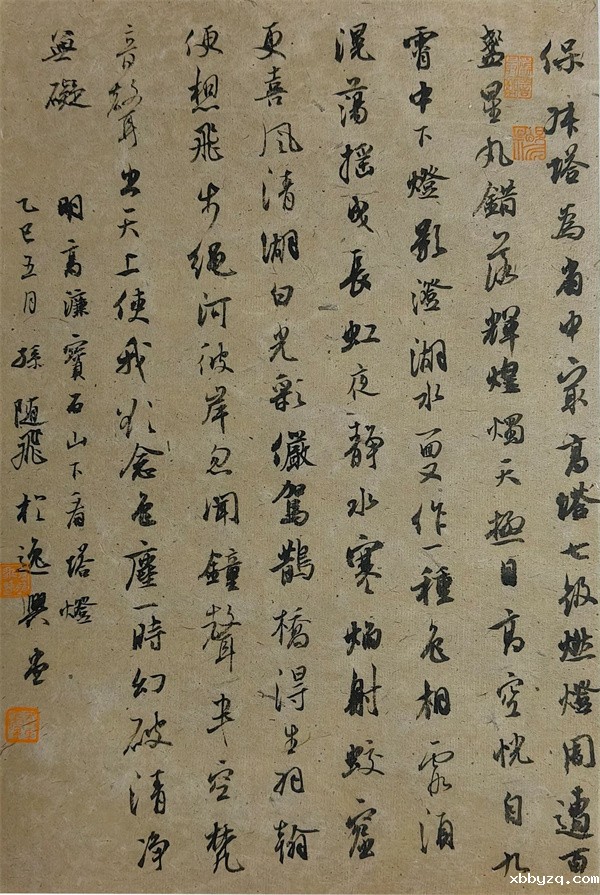 保俶塔為省中最高塔七级燃燈周遭百
盞星丸錯落輝煌燭天極目高空恍自九
霄中下燈影澄湖水面又作一種色相霞須
滉蕩摇曳長虹夜靜水寒焰射蛟窟
更喜風清湖白光彩儼駕鵲橋得生羽翰
便想飛步繩河彼岸忽聞鐘聲半空梵
音聲出天上使我欲念色塵一時幻破清净
無礙
明高濂寶石山下看塔燈
乙巳五月孫随飛於逸興堂
xbbyzq.com